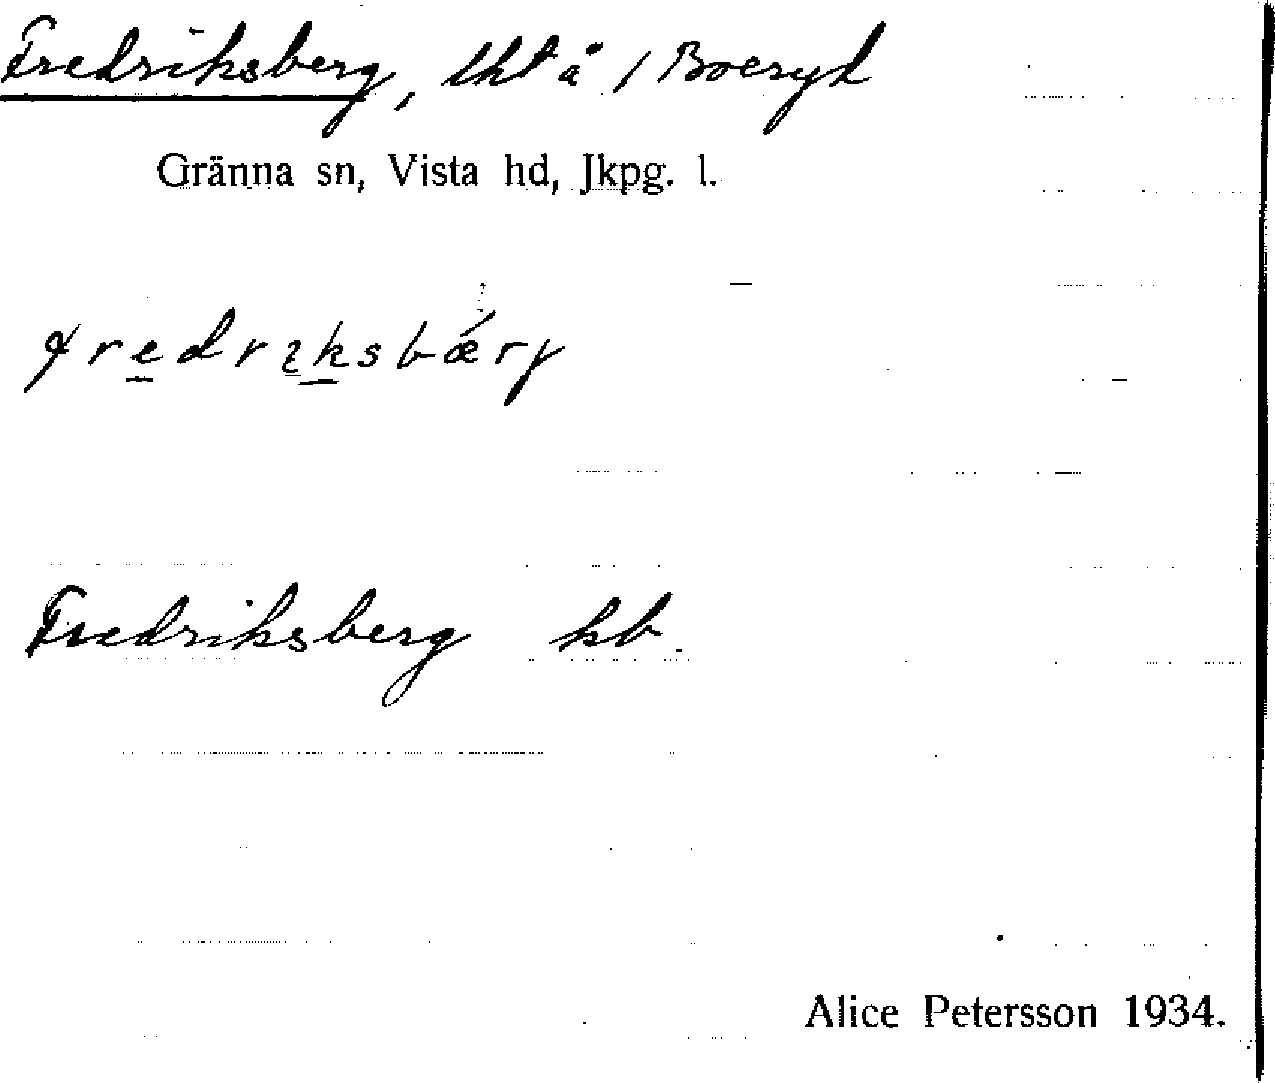 Fredriksberg, lht å / Boeryd
Gränna sn, Vista hd, Jkpg. l.
fredrɩksbǽrj
Fredriksberg kb.
Alice Petersson 1934.